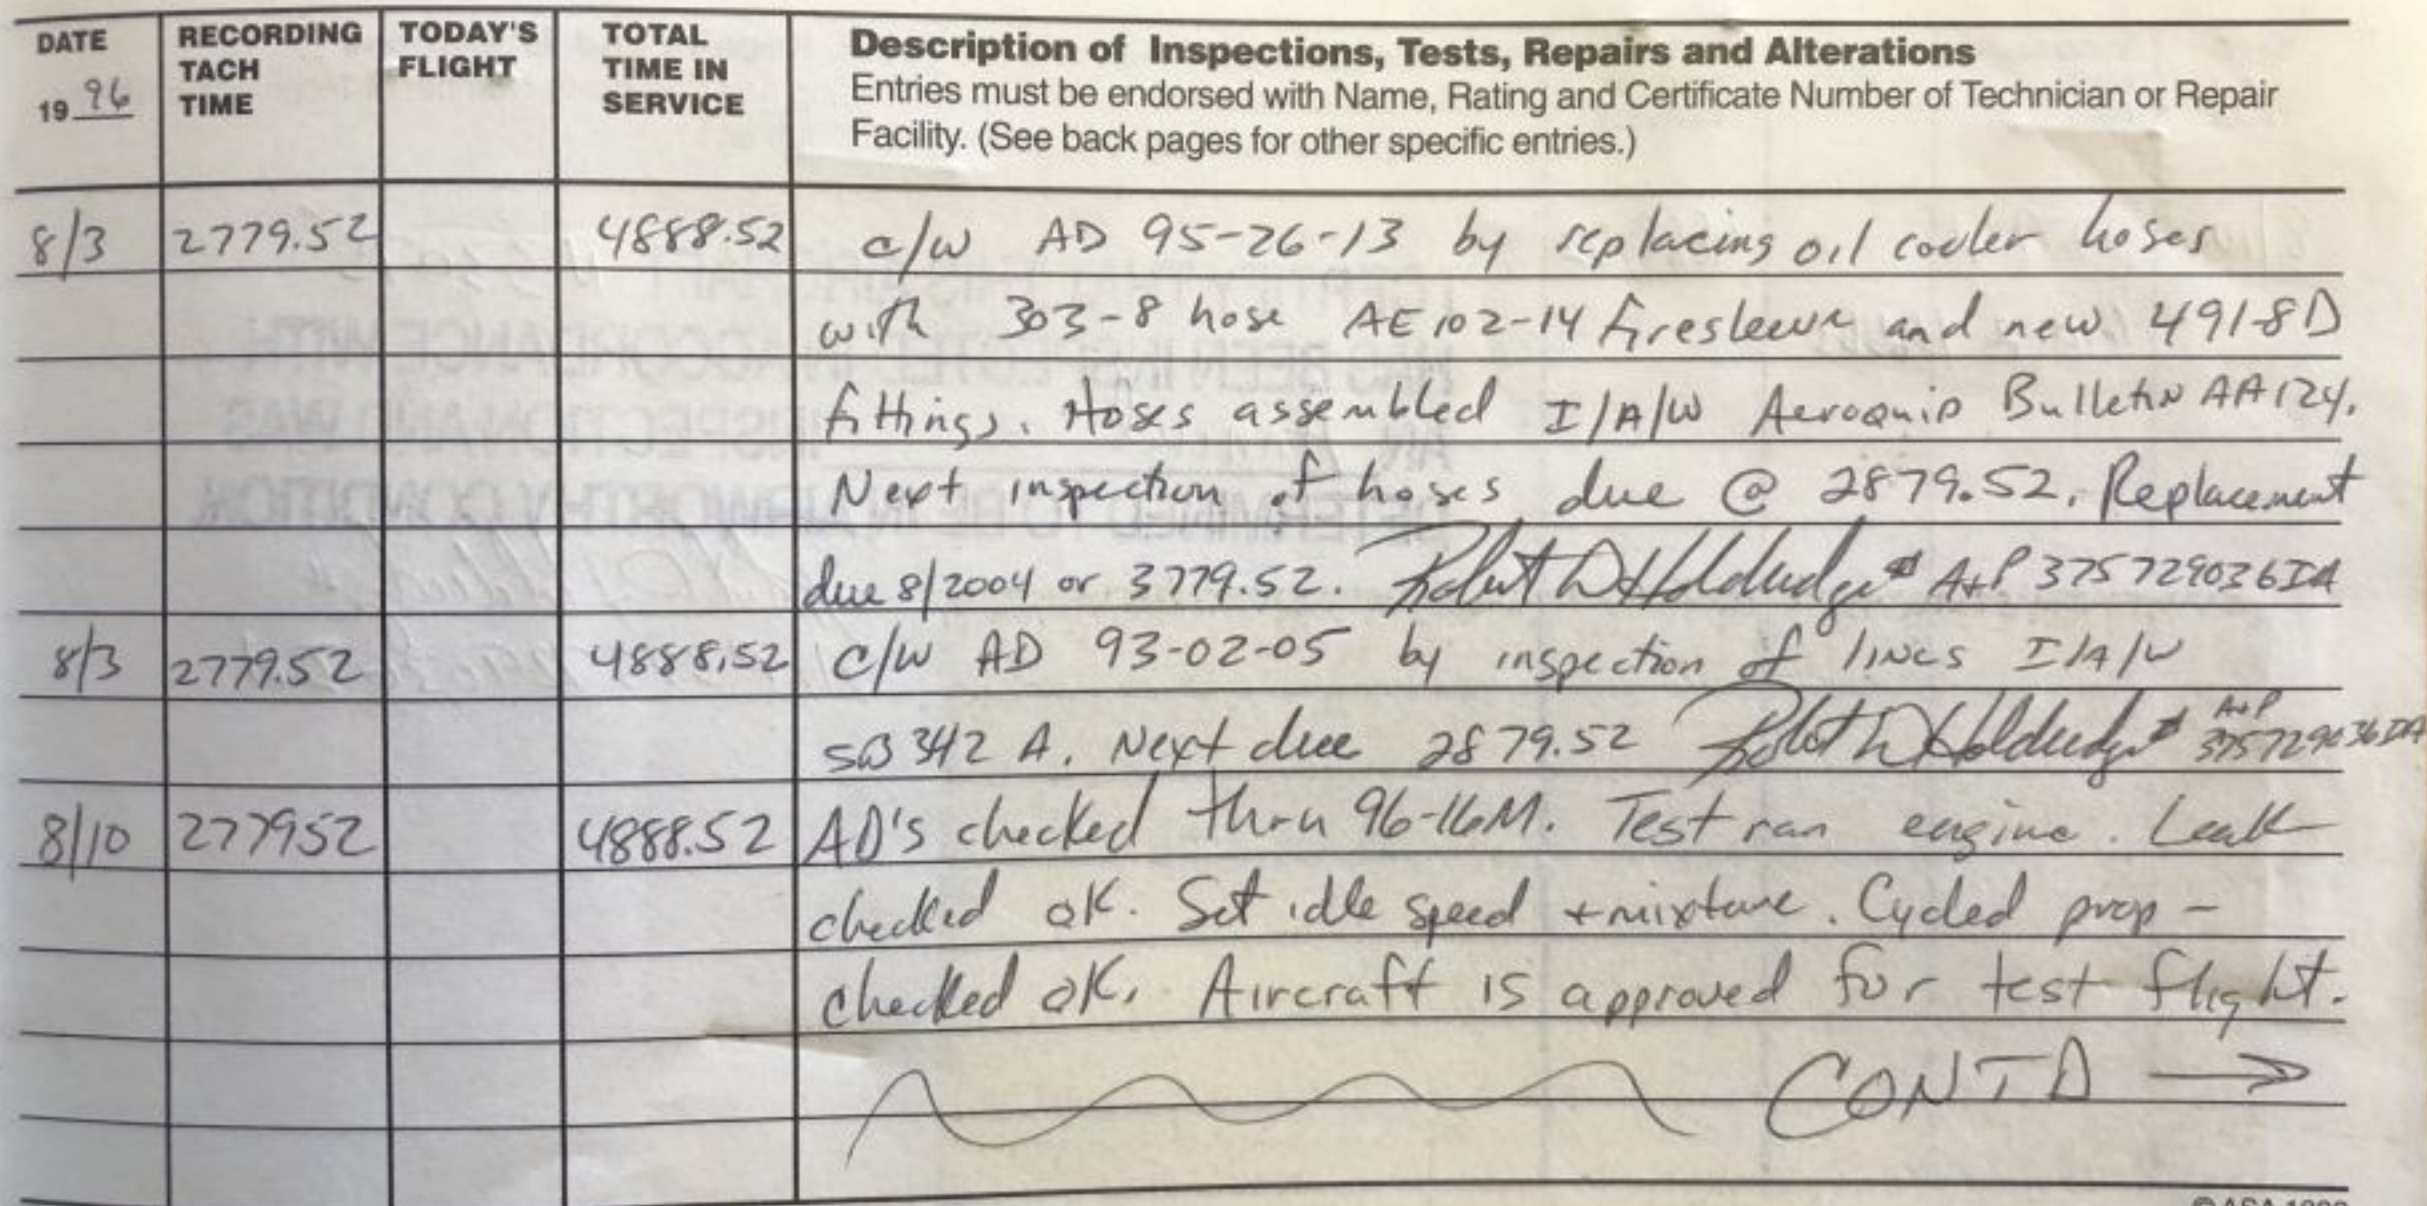 DATE RECORDING TODAY'S TOTAL Description of Inspections, Tests, Repairs and Alterations
TACH FLIGHT TIME IN Entries must be endorsed with Name, Rating and Certificate Number of Technician or Repair
19 96 TIME SERVICE Facility. (See back pages for other specific entries.)
8/3 2779.52 4888.52 c/w AD 95-26-13 by replacing oil cooler hoses
with 303-8 hose AE102-14 firesleeve and new 491-8D
fittings. Hoses assembled I/A/W Aeroquip Bulletin AA124.
Next inspection of hoses due @ 2879.52. Replacement
due 8/2004 or 3779.52. Robert W Holdredge A+P 375729036IA
8/3 2779.52 4888.52 c/w AD 93-02-05 by inspection of lines I/A/W
SB 342 A. Next due 2879.52 Robert W Holdredge A+P 375729036IA
8/10 277952 4888.52 AD's checked thru 96-16M. Test ran engine. Leak
checked ok. Set idle speed + mixture. Cycled prop -
checked ok. Aircraft is approved for test flight.
CONTD →